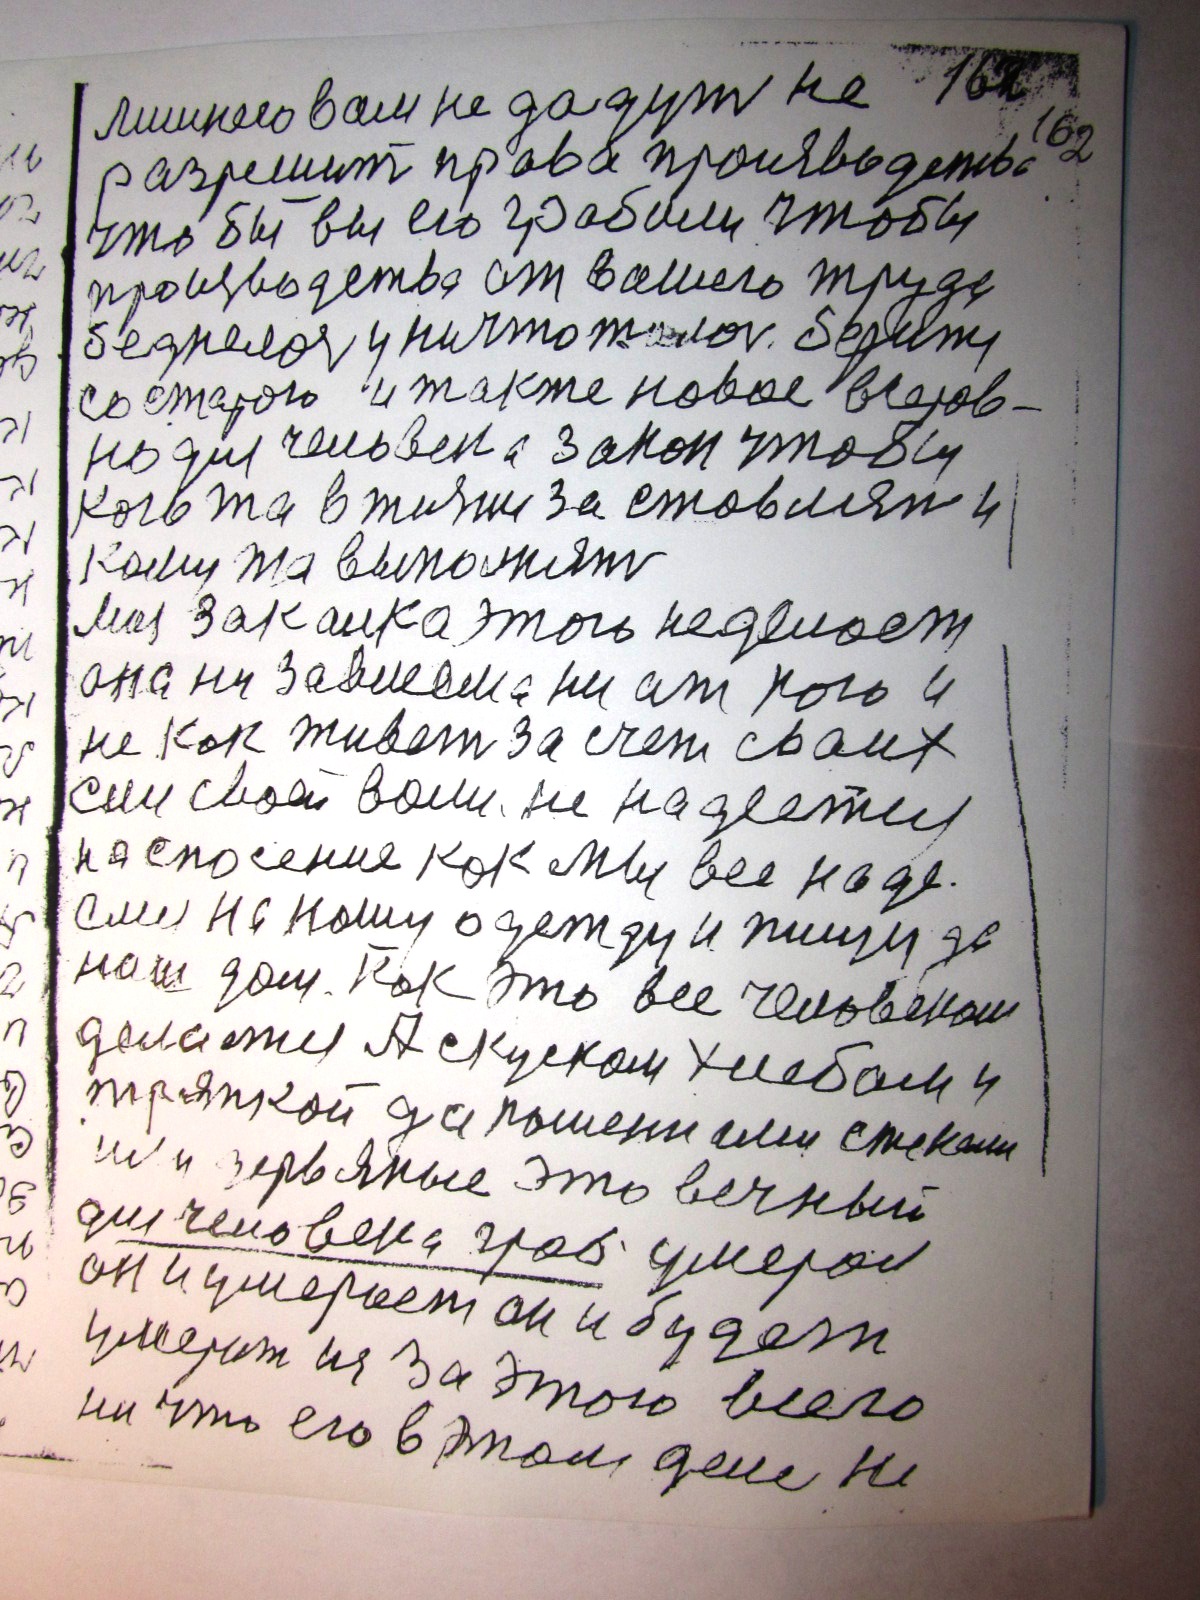 162
162
лишнего вам не дадут не
разрешит права произвьдства
что бы вы его грабили чтобы
произвьдства от вашего труда
беднелося уничтожалос. берити
со старого и также новое всеров-
но для человека закон чтобы
кого та в жизни заставлят и
кому та выполнят
Моя закалка этого неделает
она ни зависема ни ат кого и
не как живет за счет сваих
сил своей воли. не надеетия
на спосение как мы все наде.
емся на нашу одежду и пищу да
наш дом. Как это все человеком
делаетия А скуском хлебам и
тряпкой да каменнами стенами
или дервяные это вечный
для человека гроб умерал
он и умерает он и будет
умерат из за этого всего
ни что его в этом деле не